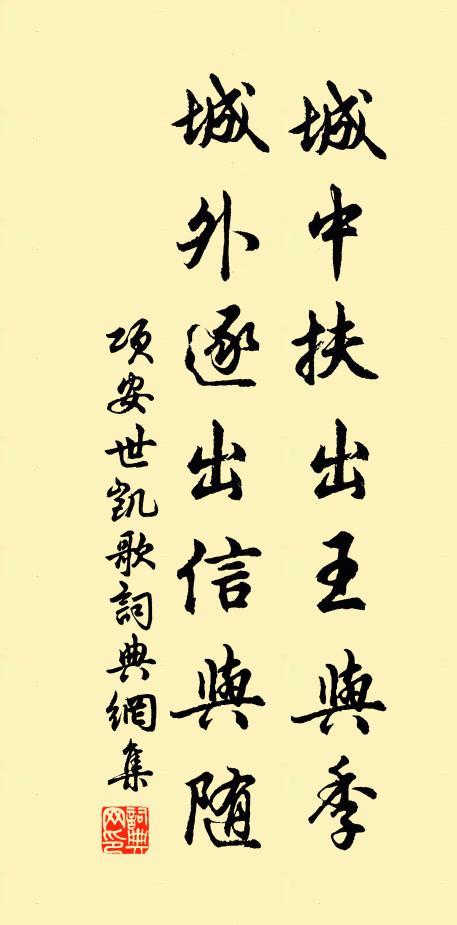 城中扶出王與季
城外逐出信與随
项安世凱歌詞典網集
詞典网印